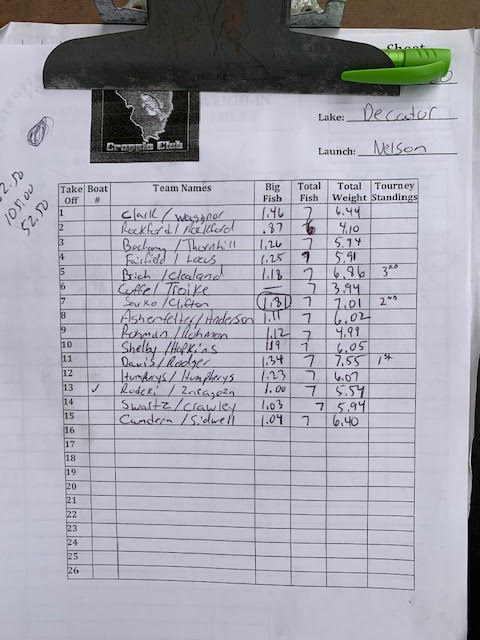 Sheet
Crappie Club
Lake: Decatur
Launch: Nelson
105.00
52.50
Take Off Boat # Team Names Big Fish Total Fish Total Weight Tourney Standings
1 Clark / Waggnor 1.46 7 6.44
2 Rockford / Rockford .87 6 4.10
3 / Thornhill 1.26 7 5.74
4 Fairfield / Lucus 1.25 7 5.91
5 / Clealand 1.18 7 6.86 3rd
6 Cuffel Troike — 7 3.94
7 / Clifton 1.81 7 7.01 2nd
8 Ashenfelter / Anderson 1.11 7 6.02
9 Rohman / Rohman 1.12 7 4.99
10 Shelby / Hopkins 7 6.05
11 Davis / Rodger 1.34 7 7.55 1st
12 Humphrys / Humpherys 1.23 7 6.07
13 ✓ 1.00 7 5.54
14 Swartz / Crawley 1.03 7 5.94
15 / Sidwell 1.04 7 6.40
16
17
18
19
20
21
22
23
24
25
26